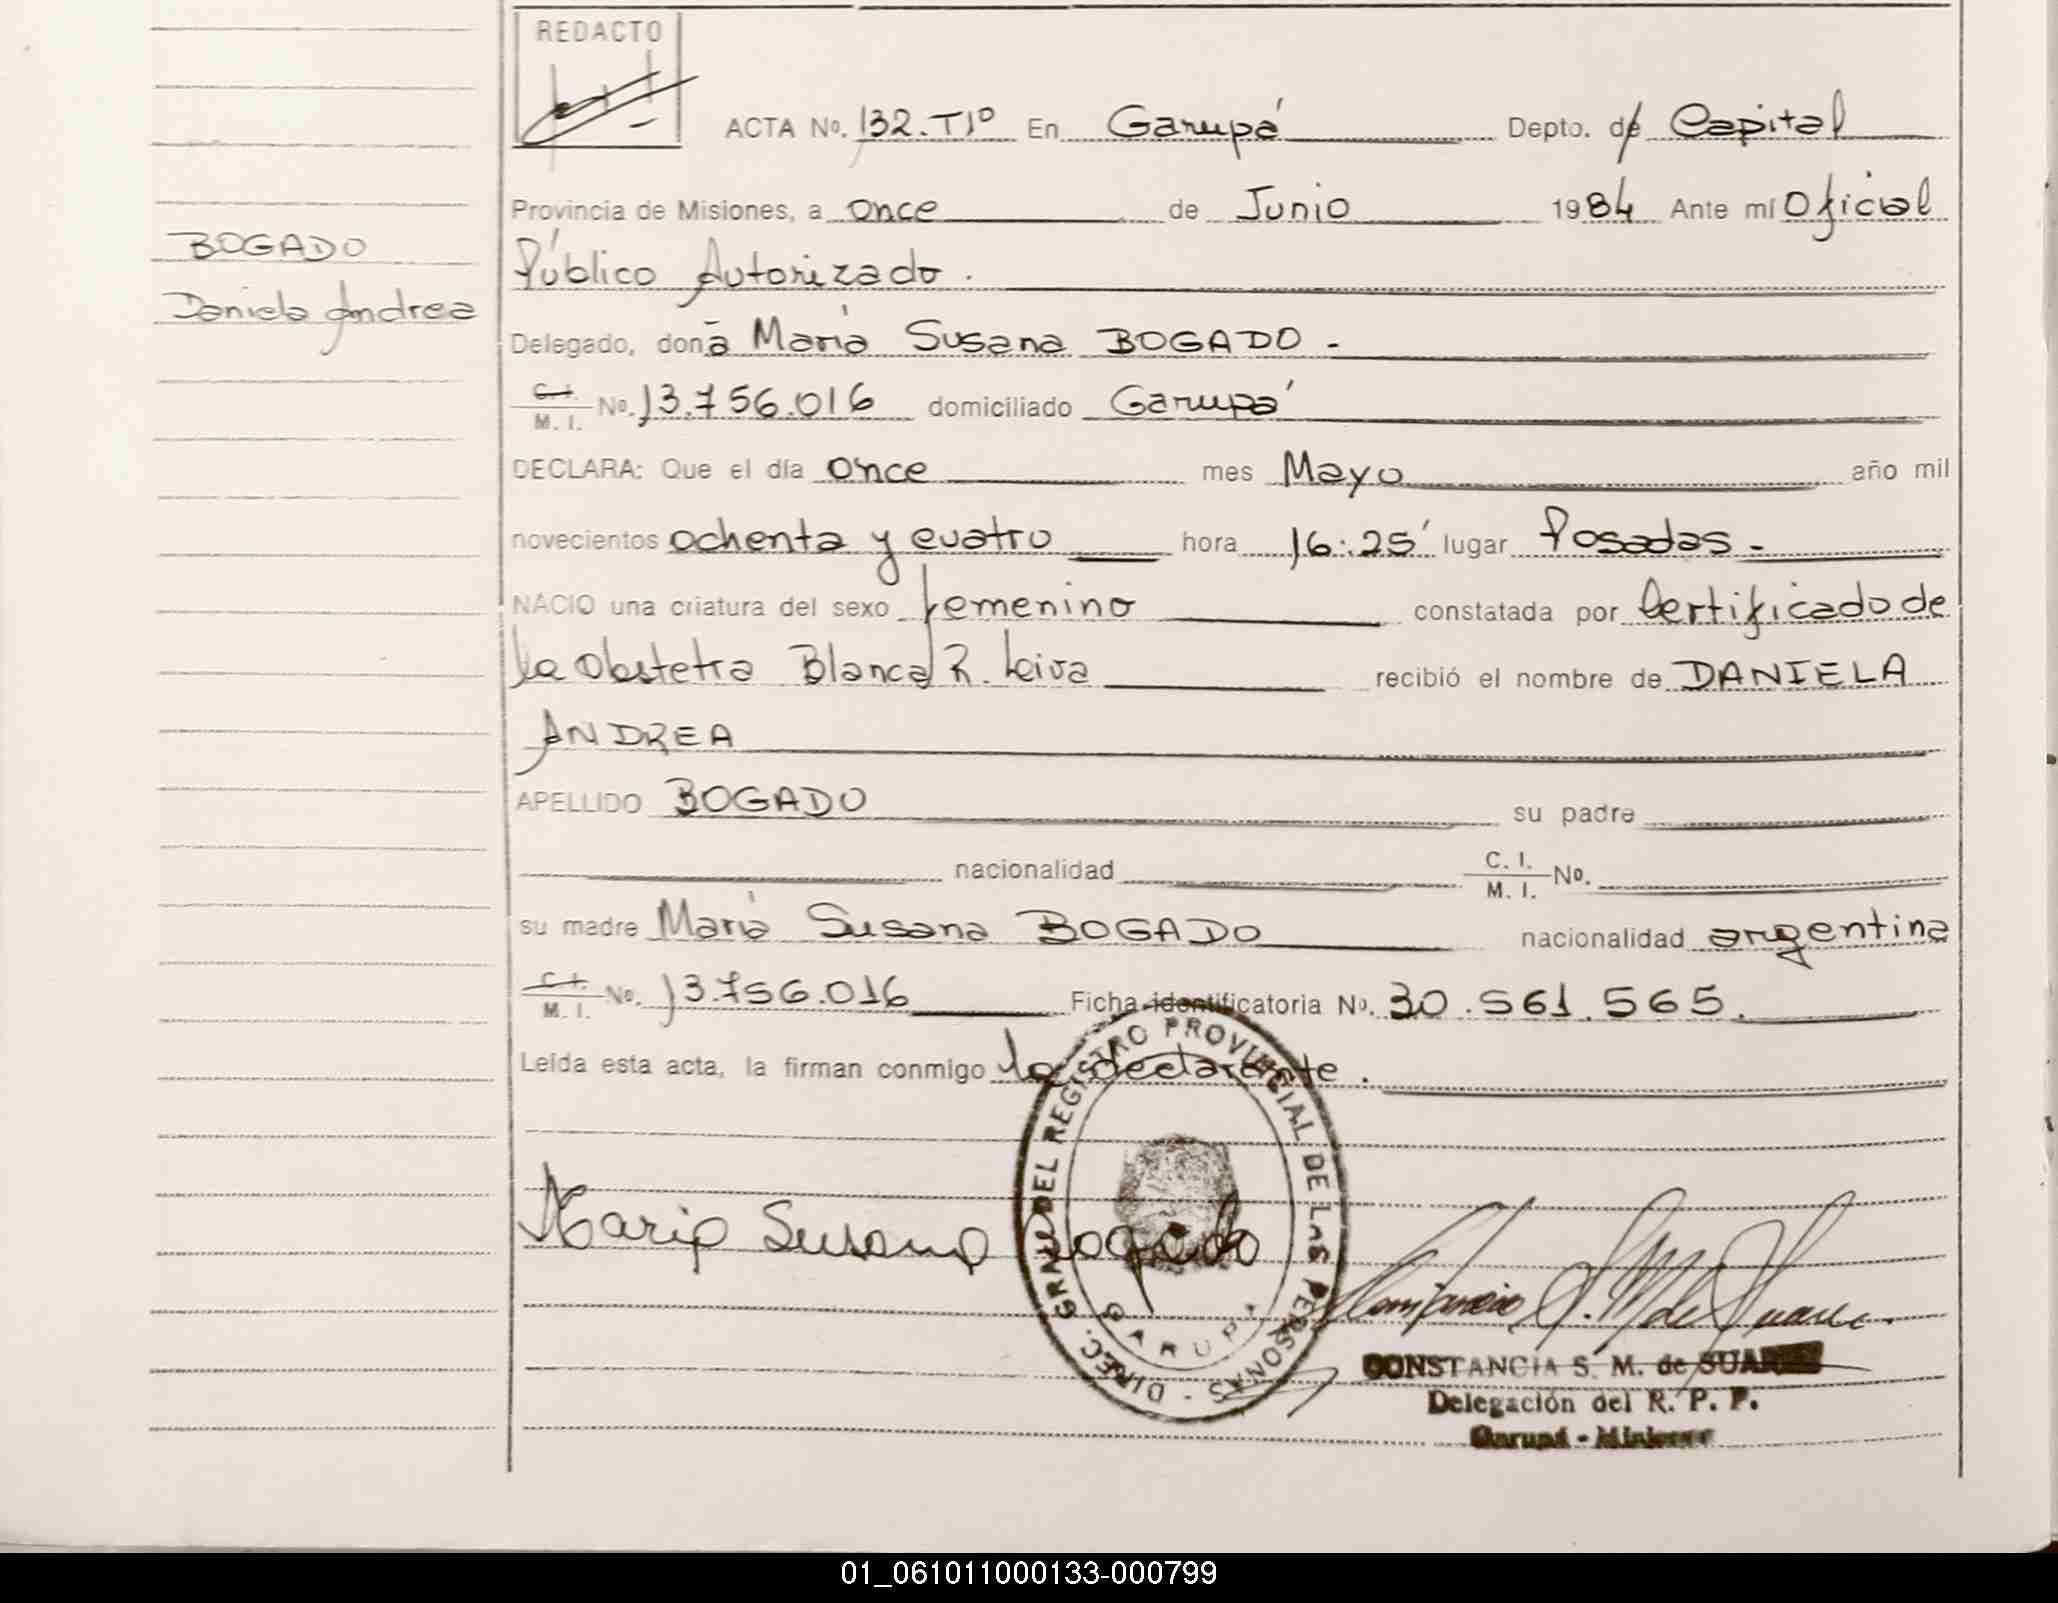 REDACTO
ACTA No. 132.Tº1º En Garupá Depto. de Capital
Provincia de Misiones, a once de Junio 1984 Ante mí Oficial
Público Autorizado.
BOGADO
Daniela Andrea
Delegado, doña María Susana BOGADO.-
C.I. M. I. No. 13.756.016 domiciliado Garupá
DECLARA: Que el día once mes Mayo año mil
novecientos ochenta y cuatro hora 16:25' lugar Posadas.-
NACIO una criatura del sexo femenino constatada por Certificado de
la Obstetra Blanca R. Leiva recibió el nombre de DANIELA
ANDREA
APELLIDO BOGADO su padre
nacionalidad C. I. M. I. No.
su madre María Susana BOGADO nacionalidad argentina
C.I. M. I. No. 13.756.016 Ficha identificatoria No. 30.561.565.
Leída esta acta, la firman conmigo la declarante.
DIREC. GRAL. DEL REGISTRO PROVINCIAL DE LAS PERSONAS -
GARUPA
Maria Susana Bogado
Constancia S. M. de Suarez
CONSTANCIA S. M. de SUAREZ
Delegación del R. P. P.
Garupá - Misiones
01_061011000133-000799